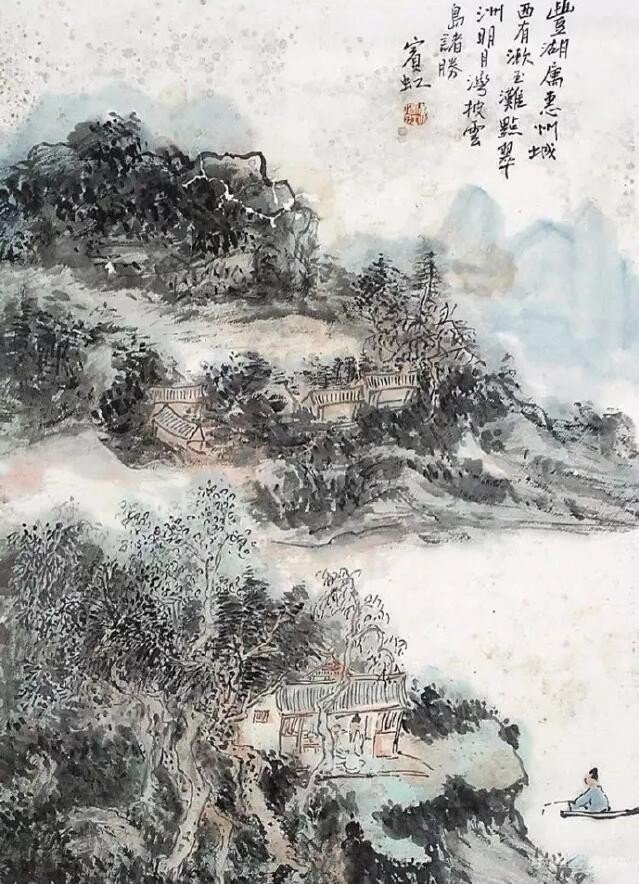 豐湖屬惠州城
西有漱玉灘點翠
洲明月灣披雲
島諸勝
賓虹